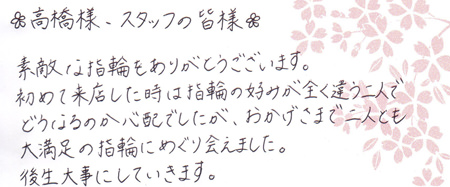 ❀高橋様、スタッフの皆様❀
素敵な指輪をありがとうございます。
初めて来店した時は指輪の好みが全く違う二人で
どうなるのか心配でしたが、おかげさまで二人とも
大満足の指輪にめぐり会えました。
後生大事にしていきます。